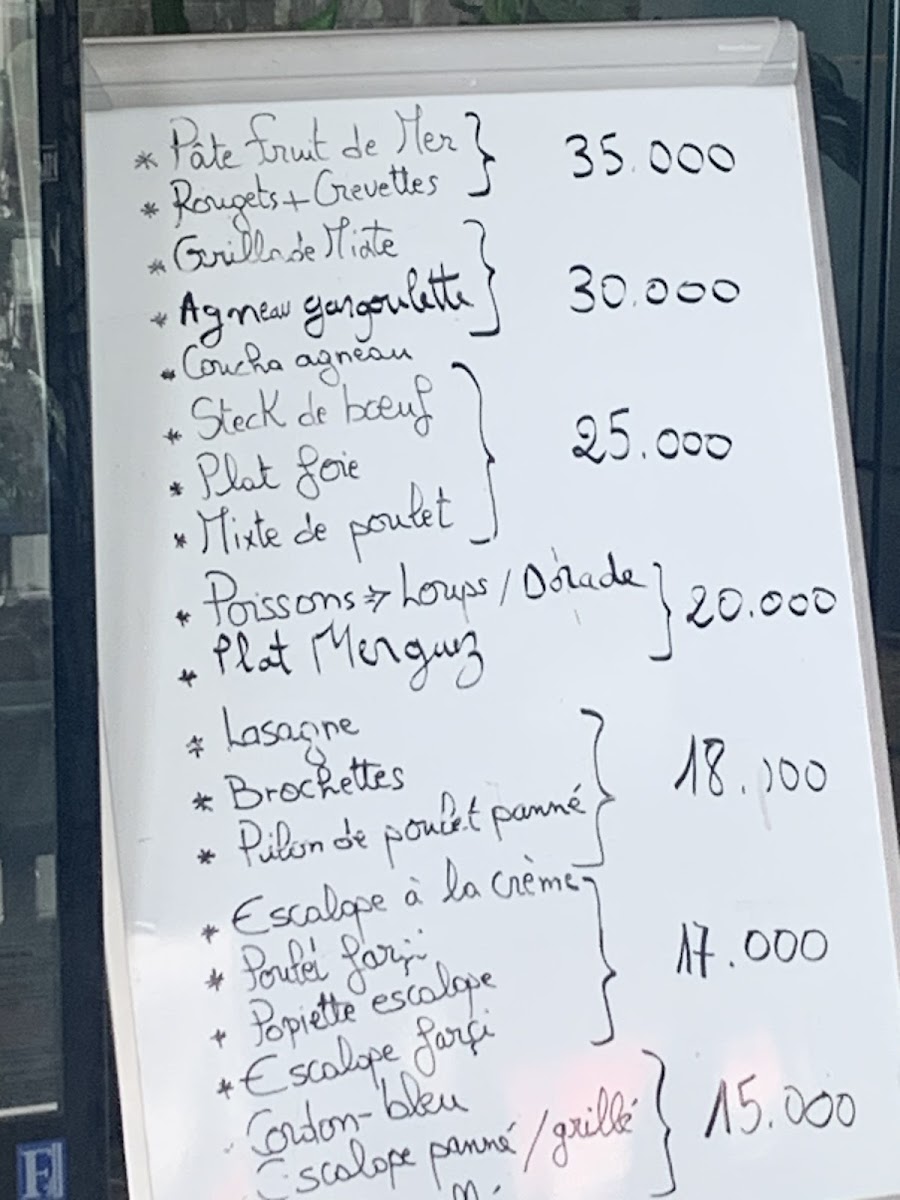 * Pâte fruit de Mer } 35.000
* Rougets + Crevettes
* Grillade Mixte } 30.000
* Agneau gargoulette
* Coucha agneau
* Steck de bœuf } 25.000
* Plat foie
* Mixte de poulet
* Poissons => Loups / Dorade } 20.000
* Plat Merguez
* Lasagne
* Brochettes } 18.000
* Pilon de poulet panné
* Escalope à la crème
* Poulet farçi } 17.000
* Popiette escalope
* Escalope farçi
Cordon-bleu } 15.000
Escalope panné / grillé
F